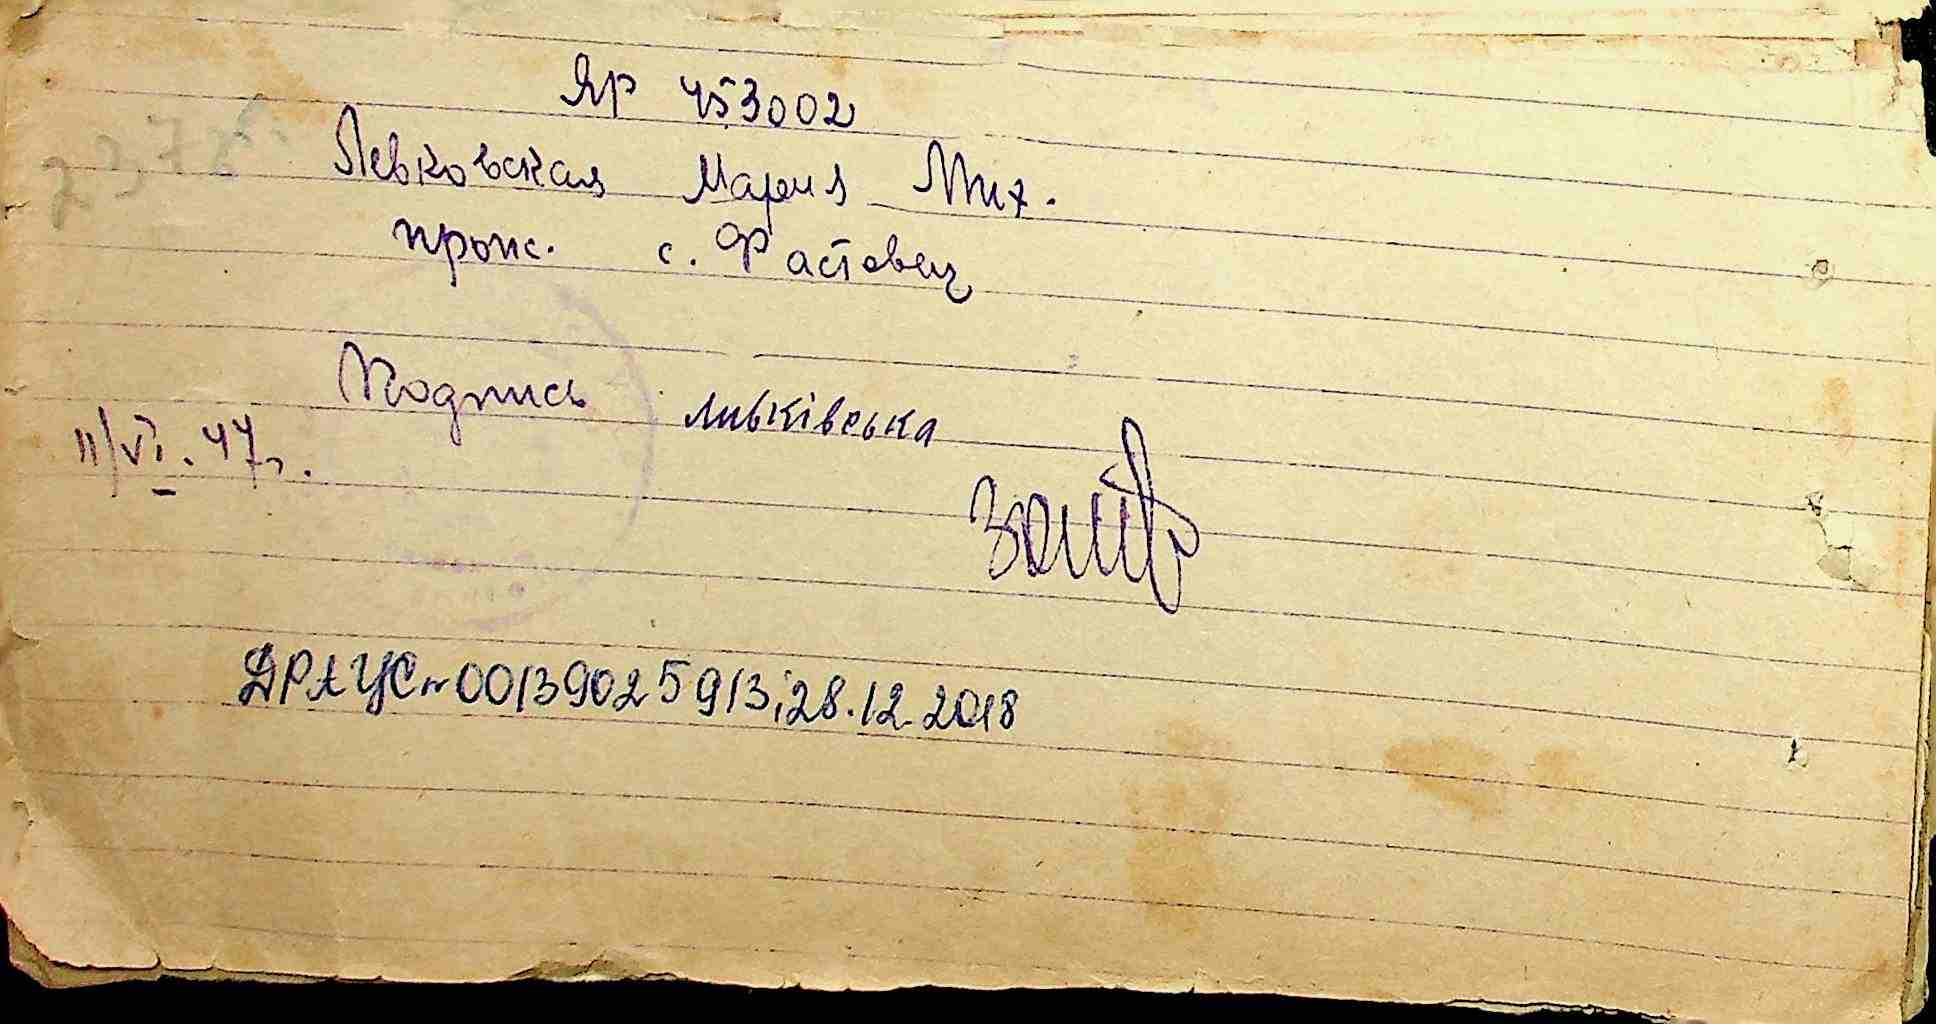 ЯР 453002
Левковская Мария Мих.
прож. с. Фастовец
Подпись ливківська
11/VI. 47г.
ДРАЦС № 00139025913; 28.12.2018